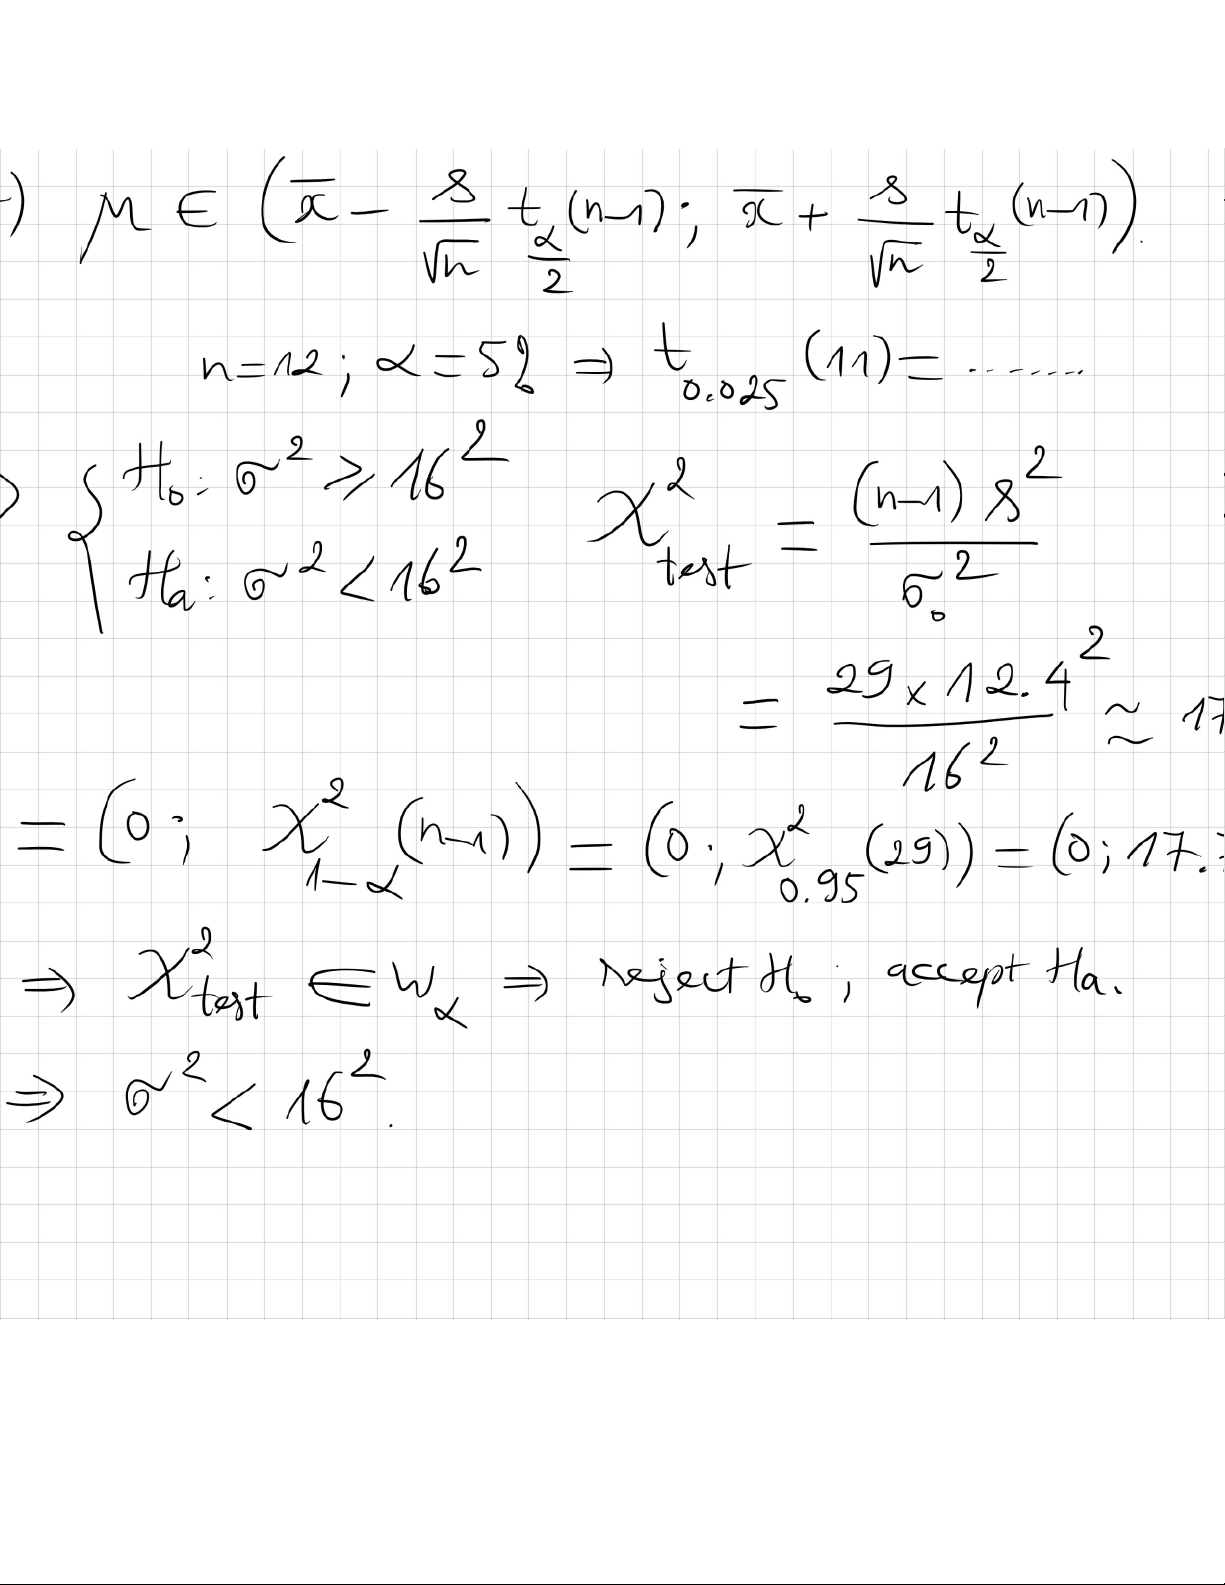 ) μ ∈ (x̄ − s/√n t_{α/2}(n−1); x̄ + s/√n t_{α/2}(n−1)).
n=12; α=5% ⇒ t_{0.025}(11)= .......
{ H₀: σ² ≥ 16² χ²_{test} = (n−1)s²/σ₀²
Hₐ: σ² < 16²
= 29×12.4²/16² ≈ 17
= (0; χ²_{1−α}(n−1)) = (0; χ²_{0.95}(29)) = (0; 17.
⇒ χ²_{test} ∈ W_α ⇒ reject H₀; accept Ha.
⇒ σ² < 16².